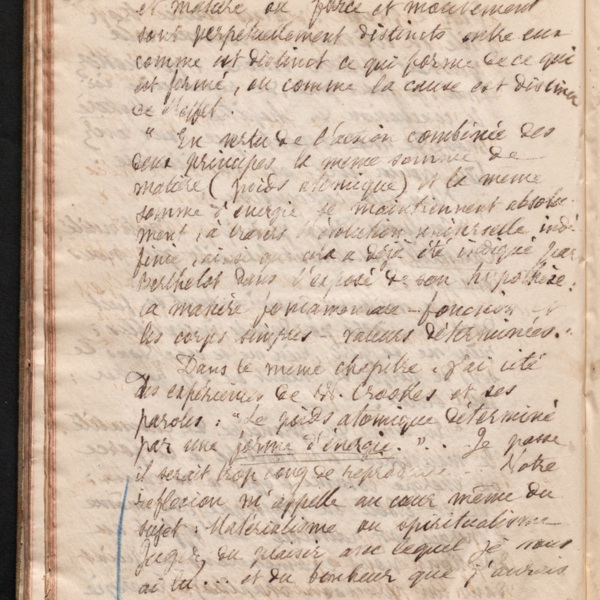 et matière ou force et mouvement
sont perpétuellement distincts entre eux
comme est distinct ce qui forme de ce qui
est formé, ou comme la cause est distincte
de l'effet.
" En vertu de l'action combinée des
deux principes, la même somme de
matière (poids atomique) et la même
somme d'énergie se maintiennent absolu-
ment, à travers l'évolution universelle indé-
finie, ainsi que cela a déjà été indiqué par
Berthelot dans l'exposé de son hypothèse:
la matière fondamentale - fonction et
les corps simples - valeurs déterminées."
Dans le même chapitre, j'ai cité
des expériences de M. Crookes et ses
paroles: "Le poids atomique déterminé
par une forme d'énergie."... Je passe
il serait trop long de reproduire... Votre
réflexion m'appelle au cœur même du
sujet: Matérialisme ou spiritualisme
Jugez du plaisir avec lequel je vous
ai lu... et du bonheur que j'aurais